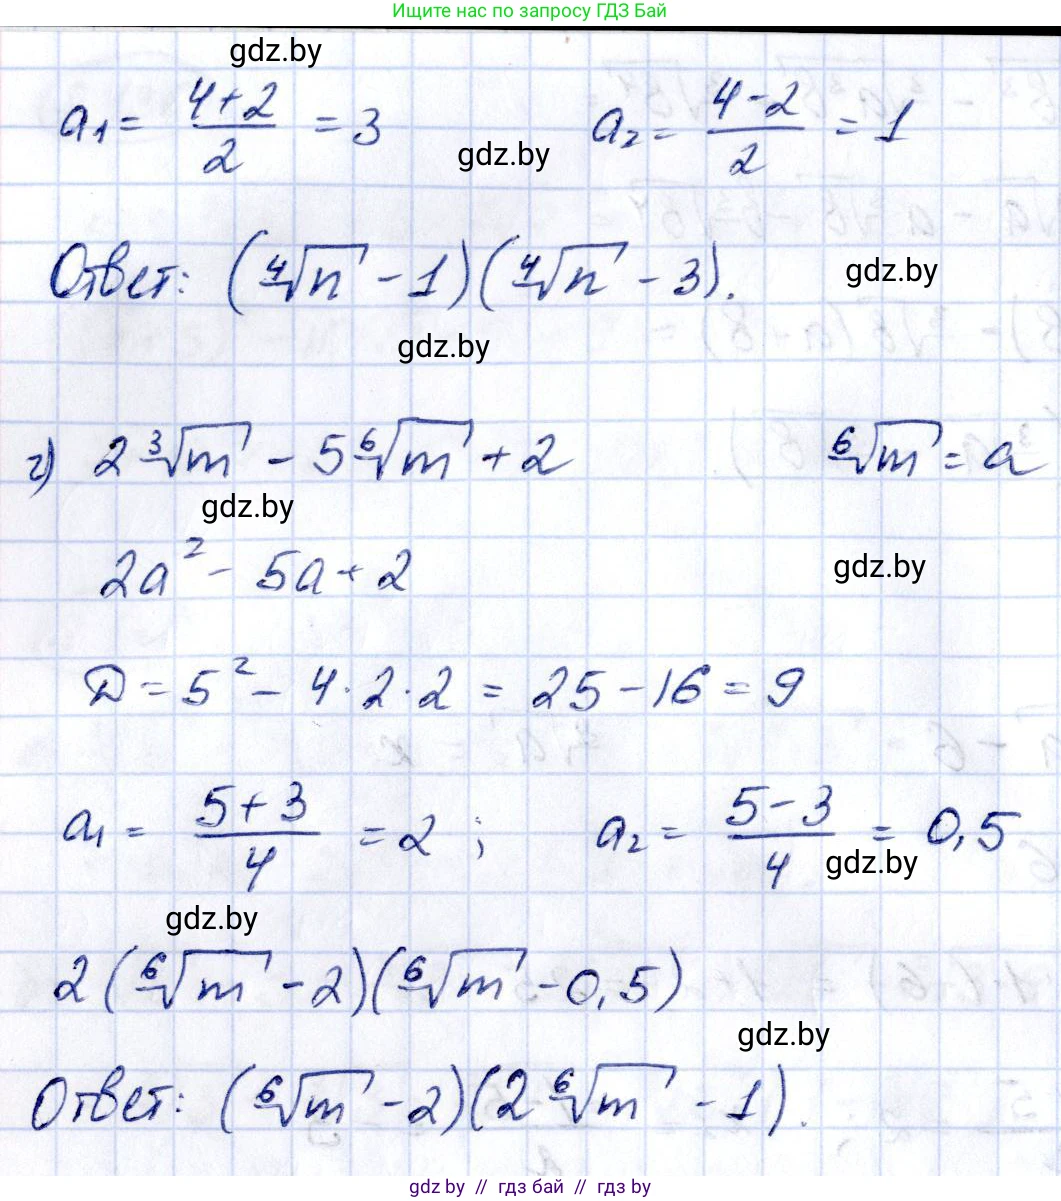 Ищите нас по запросу ГДЗ Бай
gdz.by
a₁ = (4+2)/2 = 3 a₂ = (4-2)/2 = 1
gdz.by
Ответ: (⁴√n - 1)(⁴√n - 3).
gdz.by
gdz.by
г) 2 ³√m - 5 ⁶√m + 2 ⁶√m = a
gdz.by
2a² - 5a + 2
gdz.by
D = 5² - 4·2·2 = 25 - 16 = 9
a₁ = (5+3)/4 = 2 ; a₂ = (5-3)/4 = 0,5
gdz.by
gdz.by
2(⁶√m - 2)(⁶√m - 0,5)
gdz.by
Ответ: (⁶√m - 2)(2 ⁶√m - 1).
gdz.by // гдз бай // гдз by